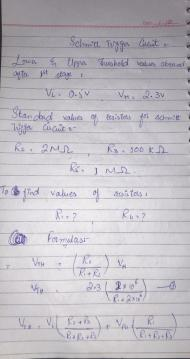 Schmitt Trigger Circuit:-
Lower & Upper threshold values obtained
after 1st stage:
VL = 0.5V VH = 2.3V
Standard values of resistors for schmitt
trigger circuit:-
R2 = 2MΩ, R3 = 500 KΩ
R5 = 1 MΩ
To find values of resistors:
R1 = ? R4 = ?
Formulas:-
VTH = (R2 / R1+R2) VH
VTH = 2.3 (2×10⁶ / R1+2×10⁶)